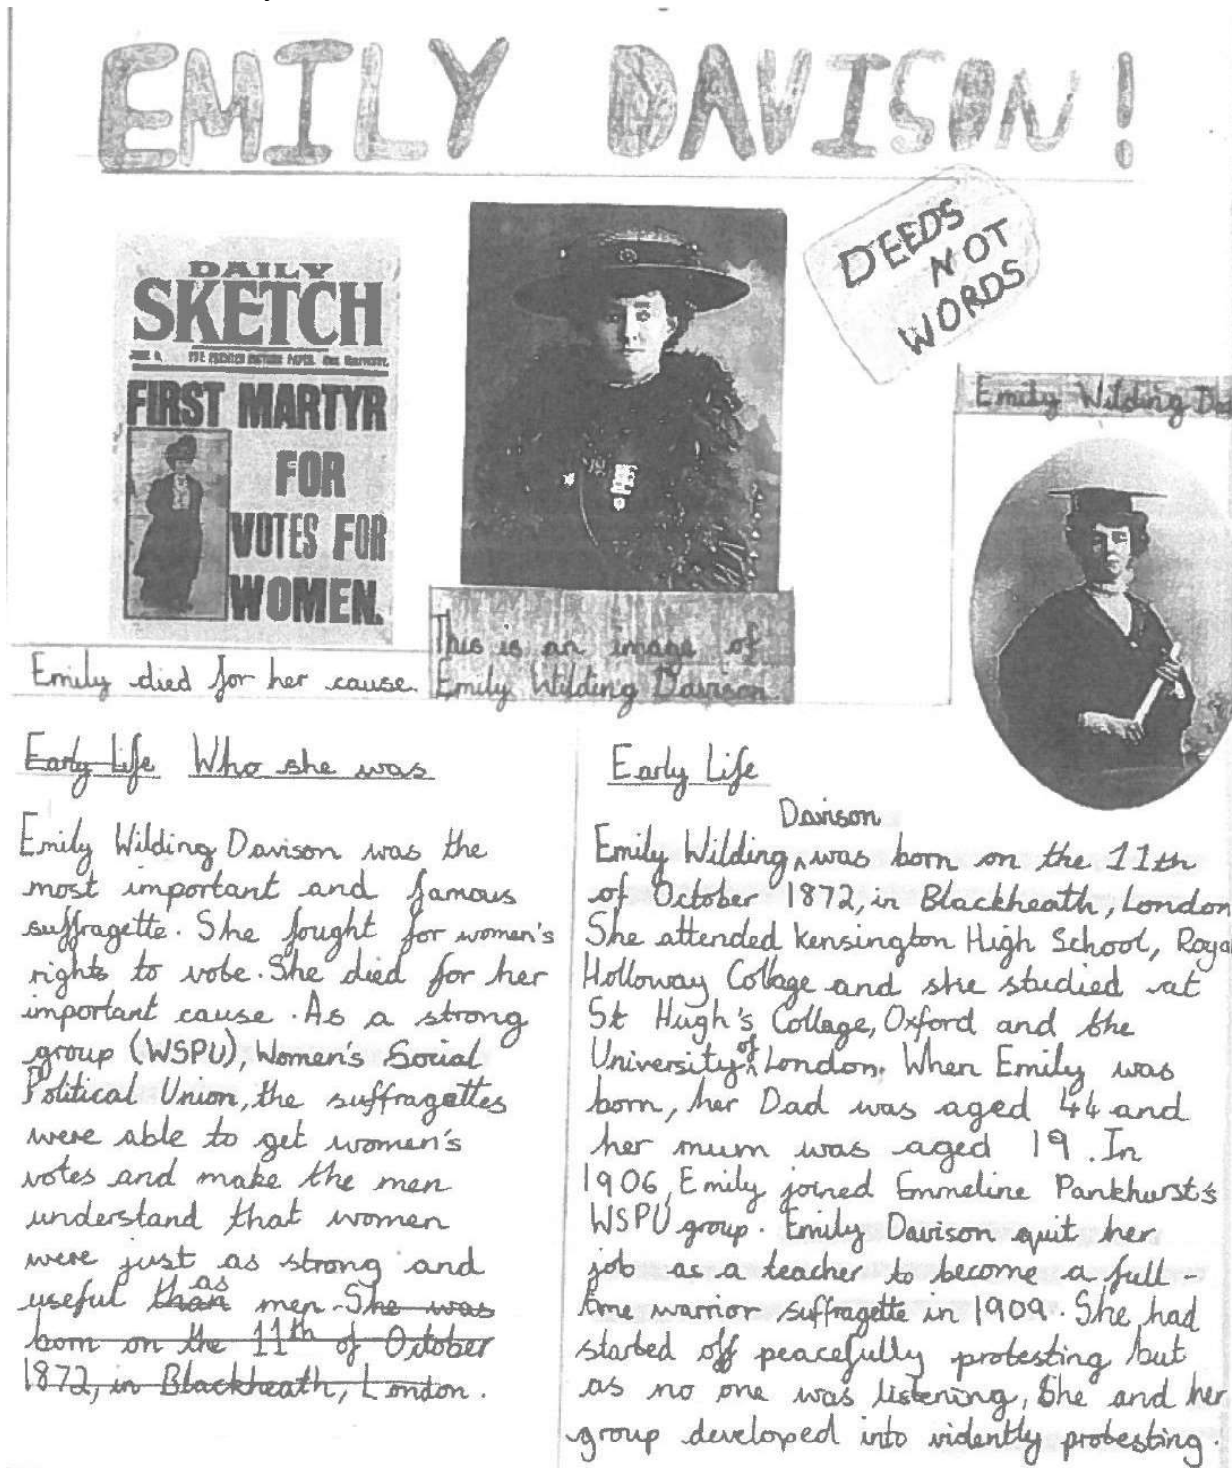 EMILY DAVISON!
DEEDS
NOT
WORDS
DAILY
SKETCH
FIRST MARTYR
FOR
VOTES FOR
WOMEN.
Emily died for her cause.
This is an image of
Emily Wilding Davison
Emily Wilding Da
Early Life Who she was
Emily Wilding Davison was the
most important and famous
suffragette. She fought for women's
rights to vote. She died for her
important cause. As a strong
group (WSPU), Women's Social
Political Union, the suffragettes
were able to get women's
votes and make the men
understand that women
were just as strong and
useful than as men. She was
born on the 11th of October
1872, in Blackheath, London.
Early Life
Emily Wilding Davison was born on the 11th
of October 1872, in Blackheath, London
She attended Kensington High School, Roya
Holloway Collage and she studied at
St Hugh's Collage, Oxford and the
University of London. When Emily was
born, her Dad was aged 44 and
her mum was aged 19. In
1906, Emily joined Emmeline Pankhurst's
WSPU group. Emily Davison quit her
job as a teacher to become a full-
time warrior suffragette in 1909. She had
started off peacefully protesting but
as no one was listening, She and her
group developed into vidently protesting.